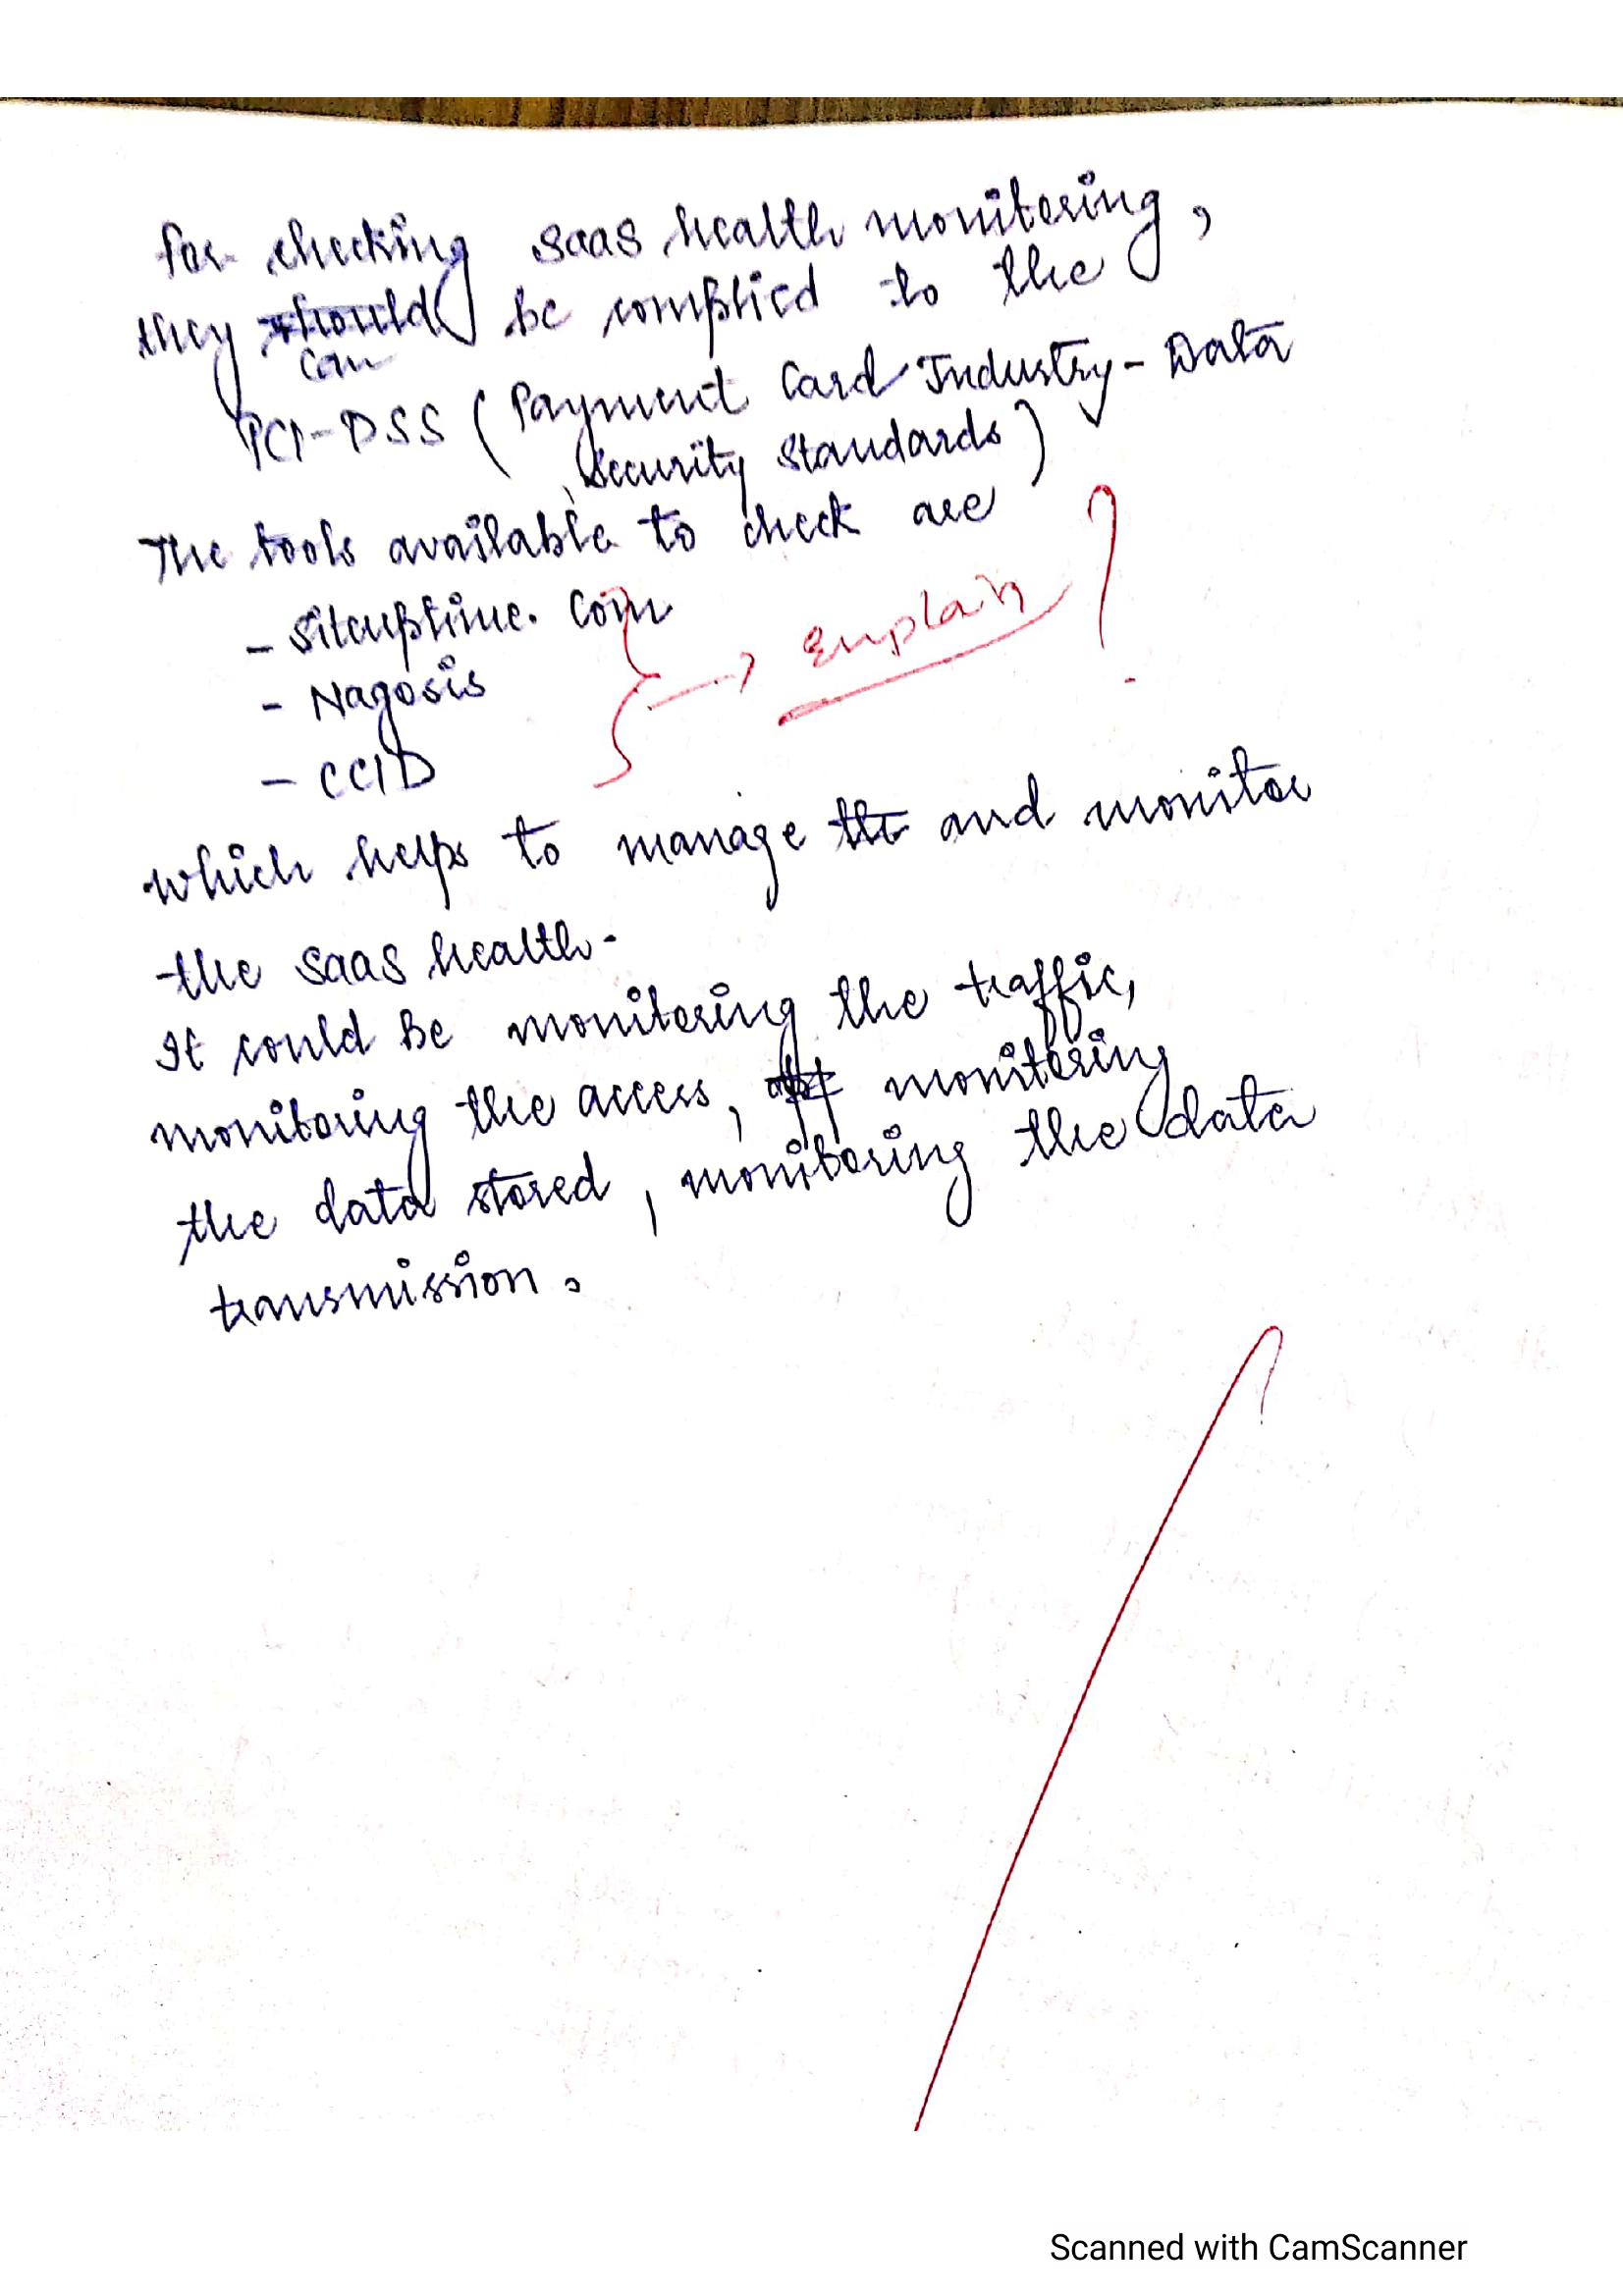 For checking SaaS health monitoring,
they should be complied to the
can
PCI-DSS (Payment Card Industry - Data
Security Standards)
The tools available to check are
- Siteuptime.com
- Nagosis
- CCID
} → Explain ?
which helps to manage the and monitor
the SaaS health.
It could be monitoring the traffic,
monitoring the access, monitoring
the data stored, monitoring the data
transmission.
Scanned with CamScanner